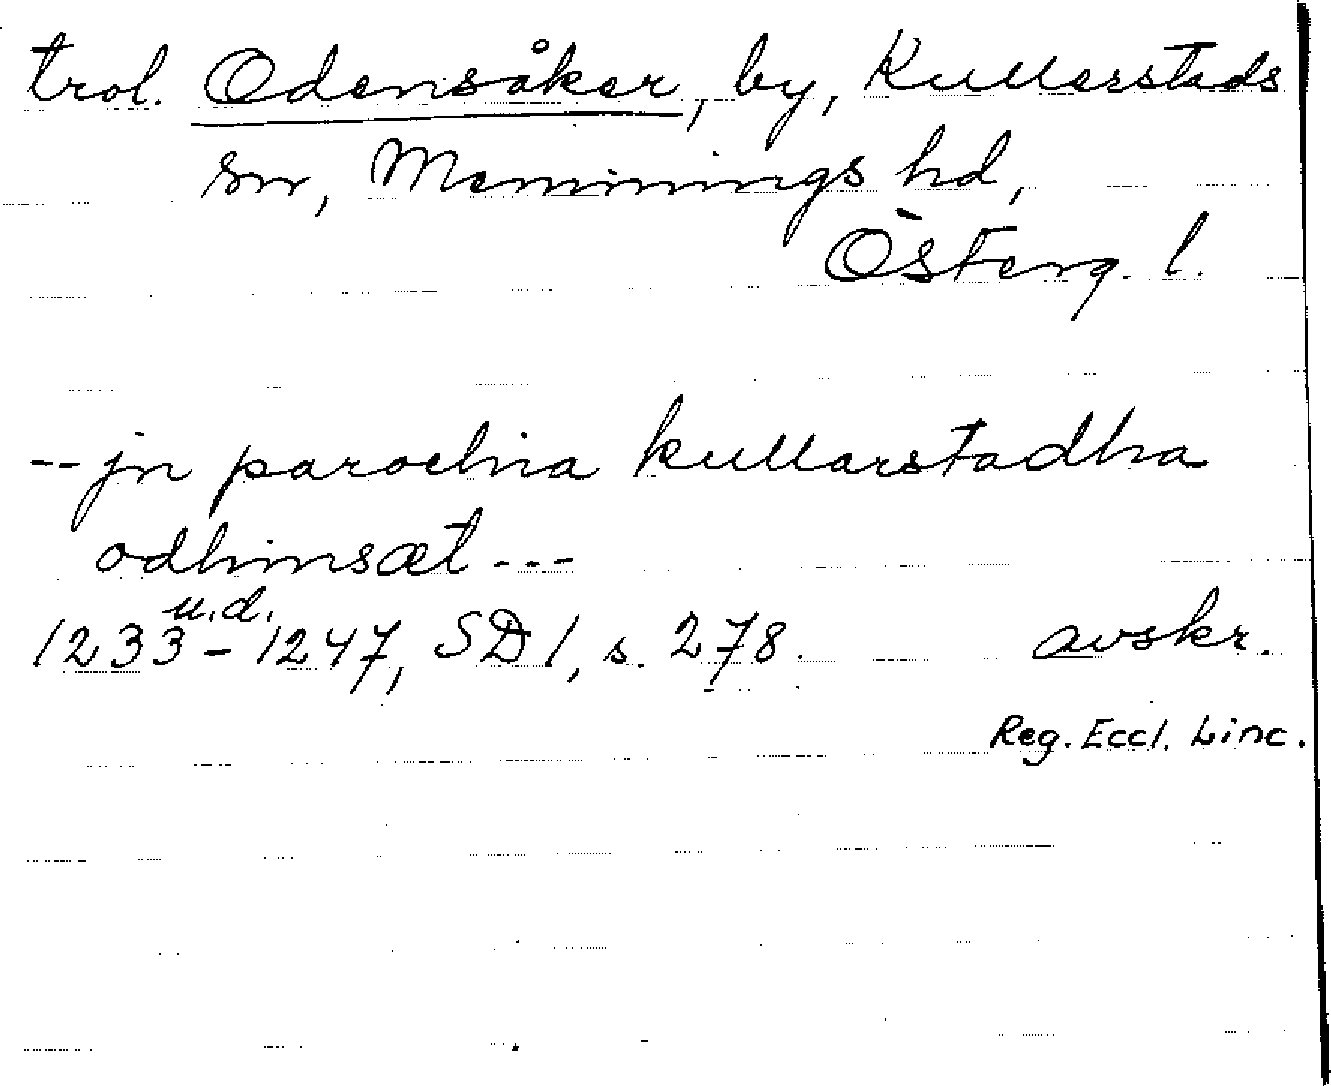 trol. Odensåker, by, Kullerstads
sn, Memmings hd,
Österg. l.
-- jn parochia kullarstadha
odhinsæt ---
u.d.
1233 - 1247, SD 1, s. 278. avskr.
Reg. Eccl. Linc.